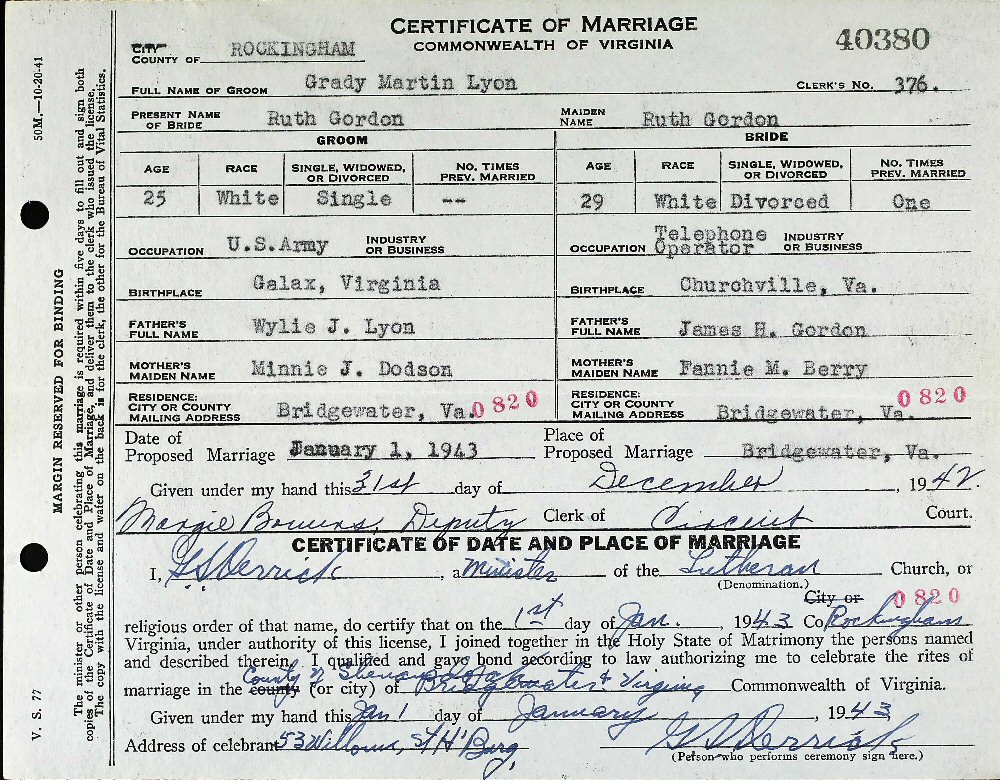 CERTIFICATE OF MARRIAGE
COMMONWEALTH OF VIRGINIA
40380
CITY
COUNTY OF ROCKINGHAM
FULL NAME OF GROOM Grady Martin Lyon CLERK'S NO. 376.
PRESENT NAME OF BRIDE Ruth Gordon MAIDEN NAME Ruth Gordon
GROOM BRIDE
AGE RACE SINGLE, WIDOWED, OR DIVORCED NO. TIMES PREV. MARRIED AGE RACE SINGLE, WIDOWED, OR DIVORCED NO. TIMES PREV. MARRIED
25 White Single -- 29 White Divorced One
OCCUPATION U.S.Army INDUSTRY OR BUSINESS OCCUPATION Telephone Operator INDUSTRY OR BUSINESS
BIRTHPLACE Galax, Virginia BIRTHPLACE Churchville, Va.
FATHER'S FULL NAME Wylie J. Lyon FATHER'S FULL NAME James H. Gordon
MOTHER'S MAIDEN NAME Minnie J. Dodson MOTHER'S MAIDEN NAME Fannie M. Berry
RESIDENCE: CITY OR COUNTY MAILING ADDRESS Bridgewater, Va. 0820 RESIDENCE: CITY OR COUNTY MAILING ADDRESS Bridgewater, Va. 0820
Date of Proposed Marriage January 1, 1943 Place of Proposed Marriage Bridgewater, Va.
Given under my hand this 31st day of December, 1942.
Margie Bowers, Deputy Clerk of Circuit Court.
CERTIFICATE OF DATE AND PLACE OF MARRIAGE
I, G S Derrick, a Minister of the Lutheran Church, or
(Denomination.)
City or 0820
religious order of that name, do certify that on the 1st day of Jan., 1943 Co Rockingham
Virginia, under authority of this license, I joined together in the Holy State of Matrimony the persons named
and described therein. I qualified and gave bond according to law authorizing me to celebrate the rites of
County of Shenandoah
marriage in the county (or city) of Bridgewater, Virginia Commonwealth of Virginia.
Given under my hand this Jan 1 day of January, 1943
Address of celebrant 53 Willow, St H'Burg, G S Derrick
(Person who performs ceremony sign here.)
50M.—10-20-41
MARGIN RESERVED FOR BINDING
The minister or other person celebrating this marriage is required within five days to fill out and sign both
copies of the Certificate of Date and Place of Marriage, and deliver them to the clerk who issued the license.
The copy with the license and water on the back is for the clerk, the other for the Bureau of Vital Statistics.
V. S. 77